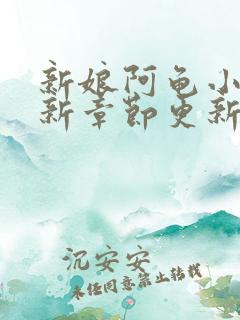 新娘阿龟小
新章节更新
沉安安
未经同意禁止转载